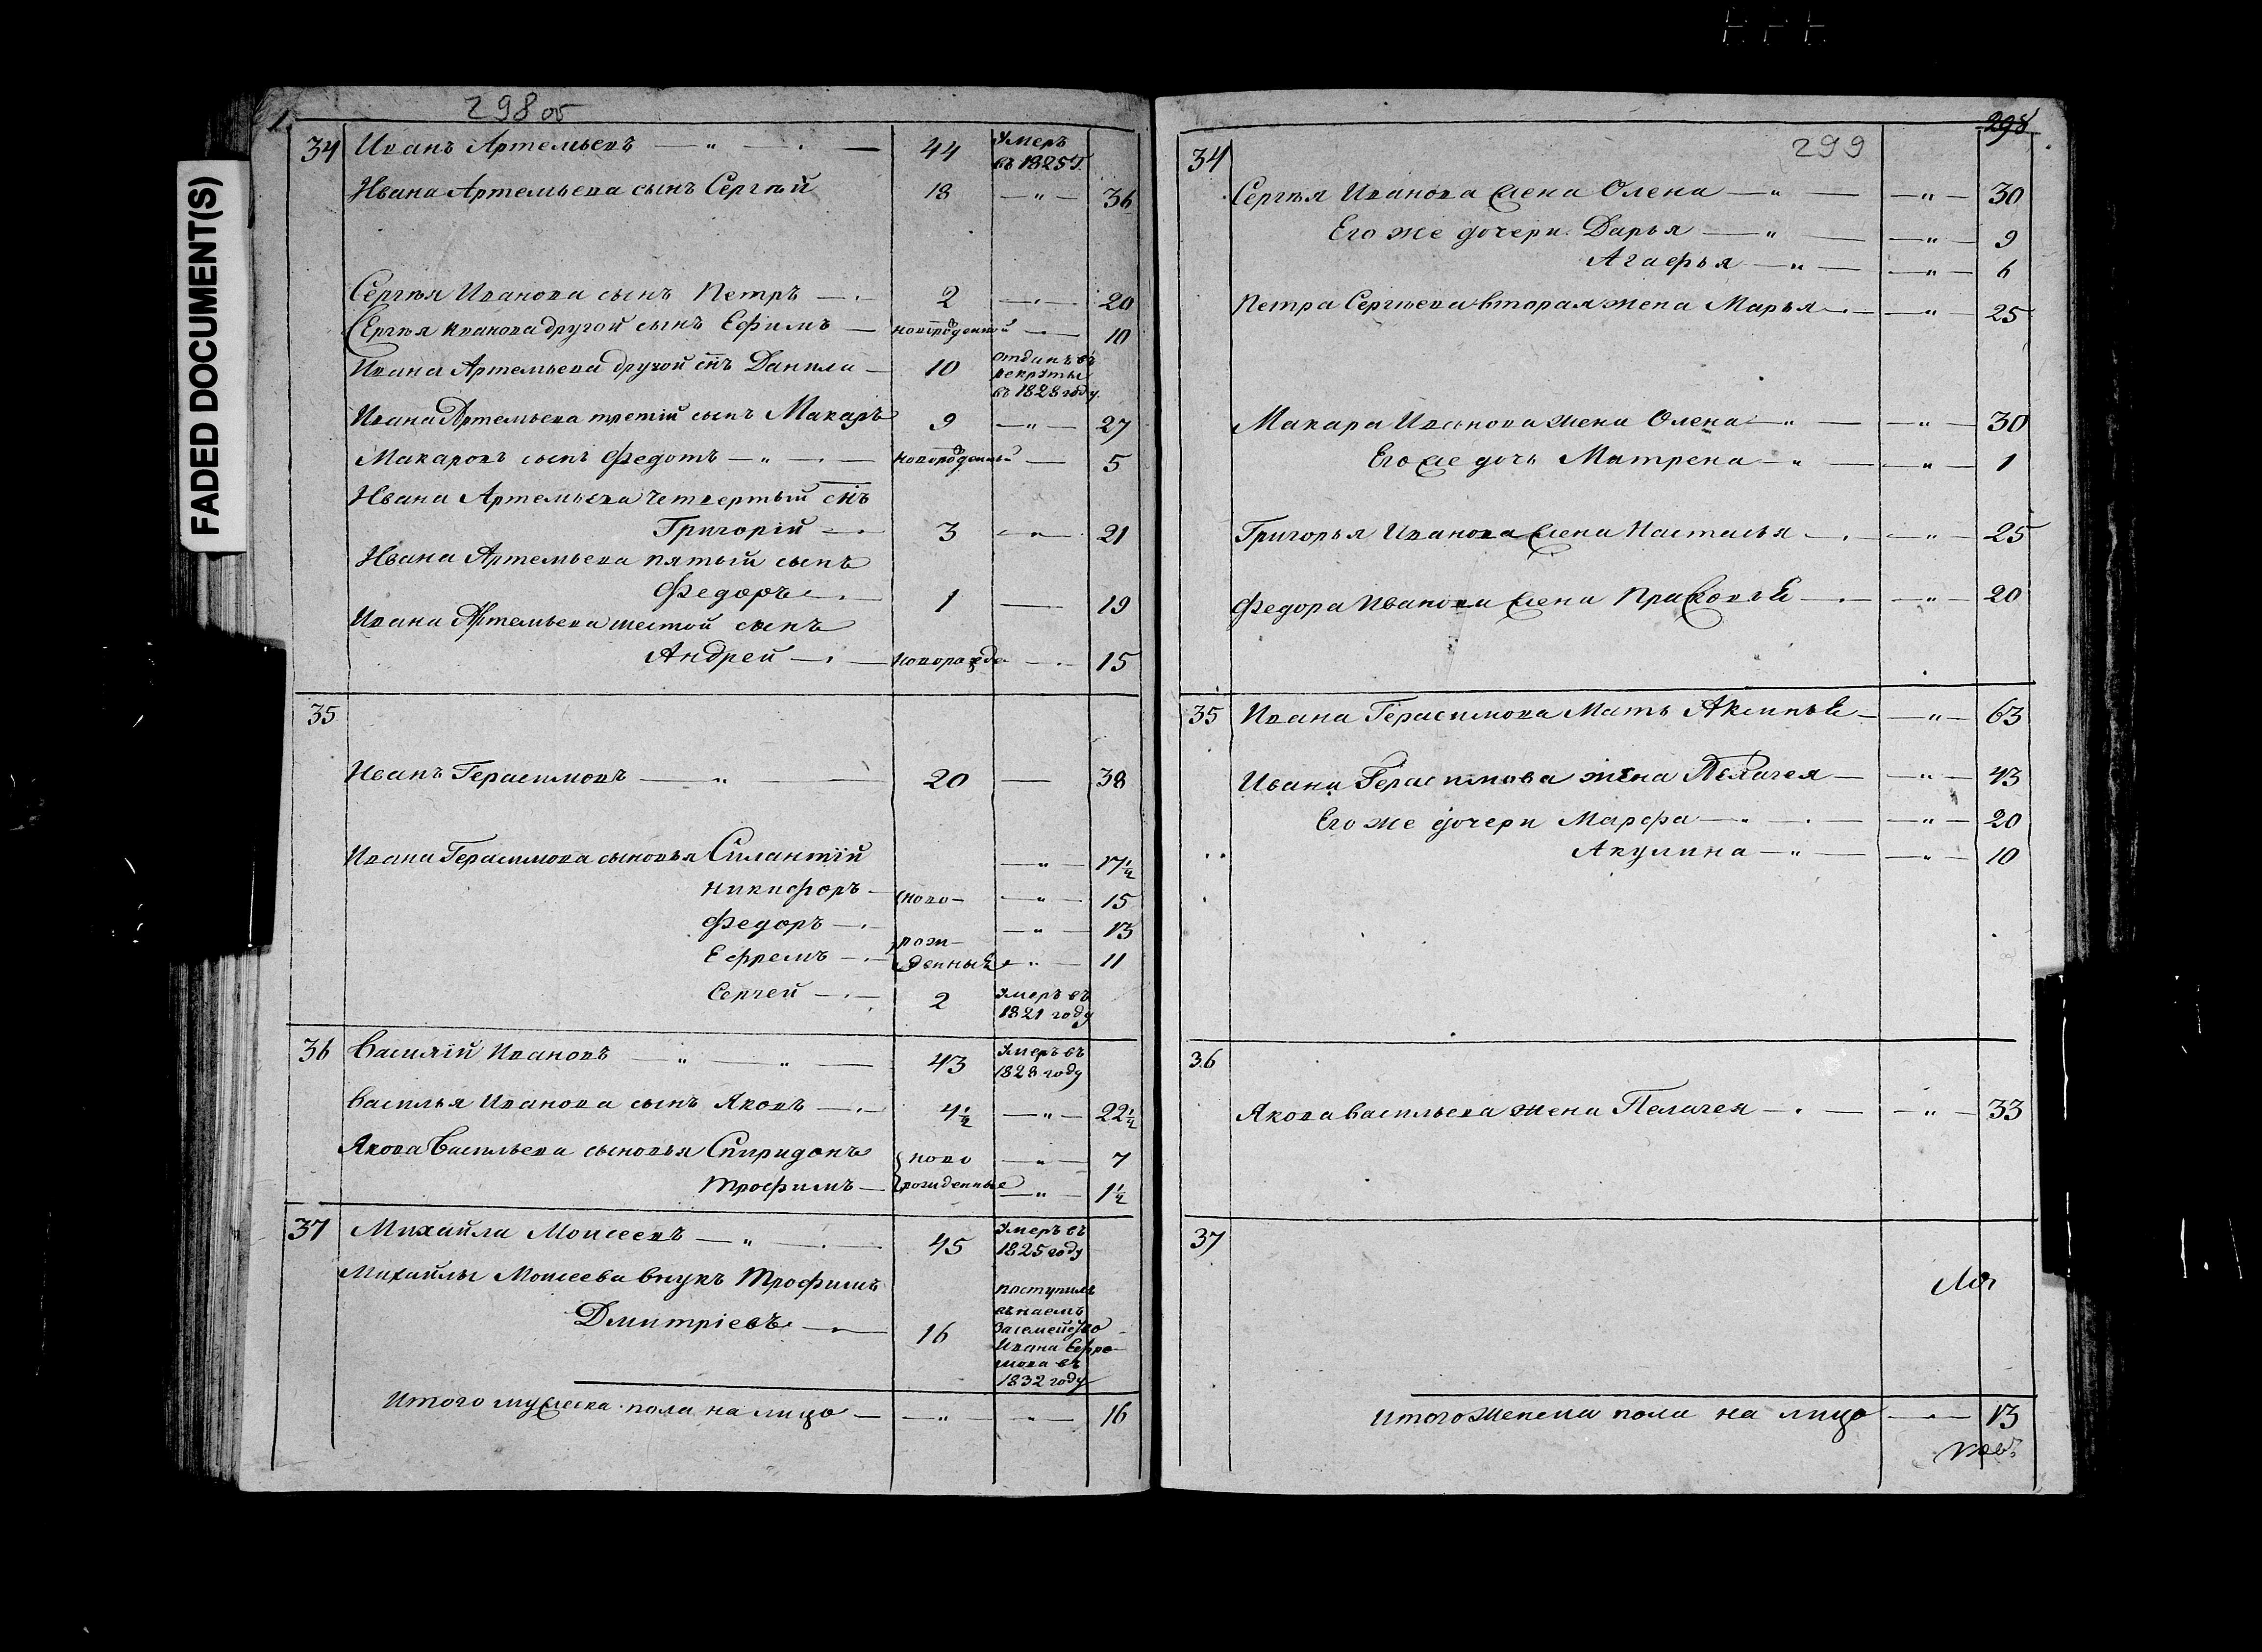 FADED DOCUMENT(S)
298 об
34 Иванъ Артемьевъ — " — 44 Умеръ въ 1825 г.
Ивана Артемьева сынъ Сергѣй 18 — " — 36
Сергѣя Иванова сынъ Петръ — 2 — " — 20
Сергѣя Иванова другой сынъ Ефимъ — новорожденный — 10
Ивана Артемьева другой снъ Данила — 10 отданъ въ рекруты въ 1828 году
Ивана Артемьева третій сынъ Макаръ 9 — " — 27
Макаровъ сынъ Федотъ — " — новорожденный — 5
Ивана Артемьева четвертый снъ
Григорій — 3 — " — 21
Ивана Артемьева пятый сынъ
Федоръ — 1 — 19
Ивана Артемьева шестой сынъ
Андрей — новорожде — 15
35
Иванъ Герасимовъ — " — 20 — 38
Ивана Герасимова сыновья Силантій — " — 17 1/2
Никифоръ — ново- — " — 15
Федоръ — рож- — " — 13
Ефремъ — денные — " — 11
Сергей — 2 Умеръ въ 1821 году
36 Василій Ивановъ — " — " — 43 Умеръ въ 1828 году
Василья Иванова сынъ Яковъ — 4 1/2 — " — 22 1/2
Якова Васильева сыновья Спиридонъ ново — " — 7
Трофимъ — рожденные — " — 1 1/2
37 Михайла Моисеевъ — " — 45 Умеръ въ 1825 году
Михайлы Моисеева внукъ Трофимъ
Дмитріевъ — 16 поступилъ въ наемъ за семейство Ивана Ефремова въ 1832 году
Итого мужеска пола на лицо — " — " — 16
298
299
34
Сергѣя Иванова жена Олена — " — " — 30
Его же дочери Дарья — " — " — 9
Агафья — " — " — 6
Петра Сергѣева вторая жена Марья — " — 25
Макара Иванова жена Олена — " — " — 30
Его же дочь Матрена — " — " — 1
Григорья Иванова жена Настасья — " — 25
Федора Иванова жена Прасковья — " — 20
35 Ивана Герасимова Мать Аксинья — " — 63
Ивана Герасимова жена Пелагея — " — 43
Его же дочери Марфа — " — " — 20
Акулина — " — " — 10
36
Якова Васильева жена Пелагея — " — 33
37
Итого женска пола на лицо — 13